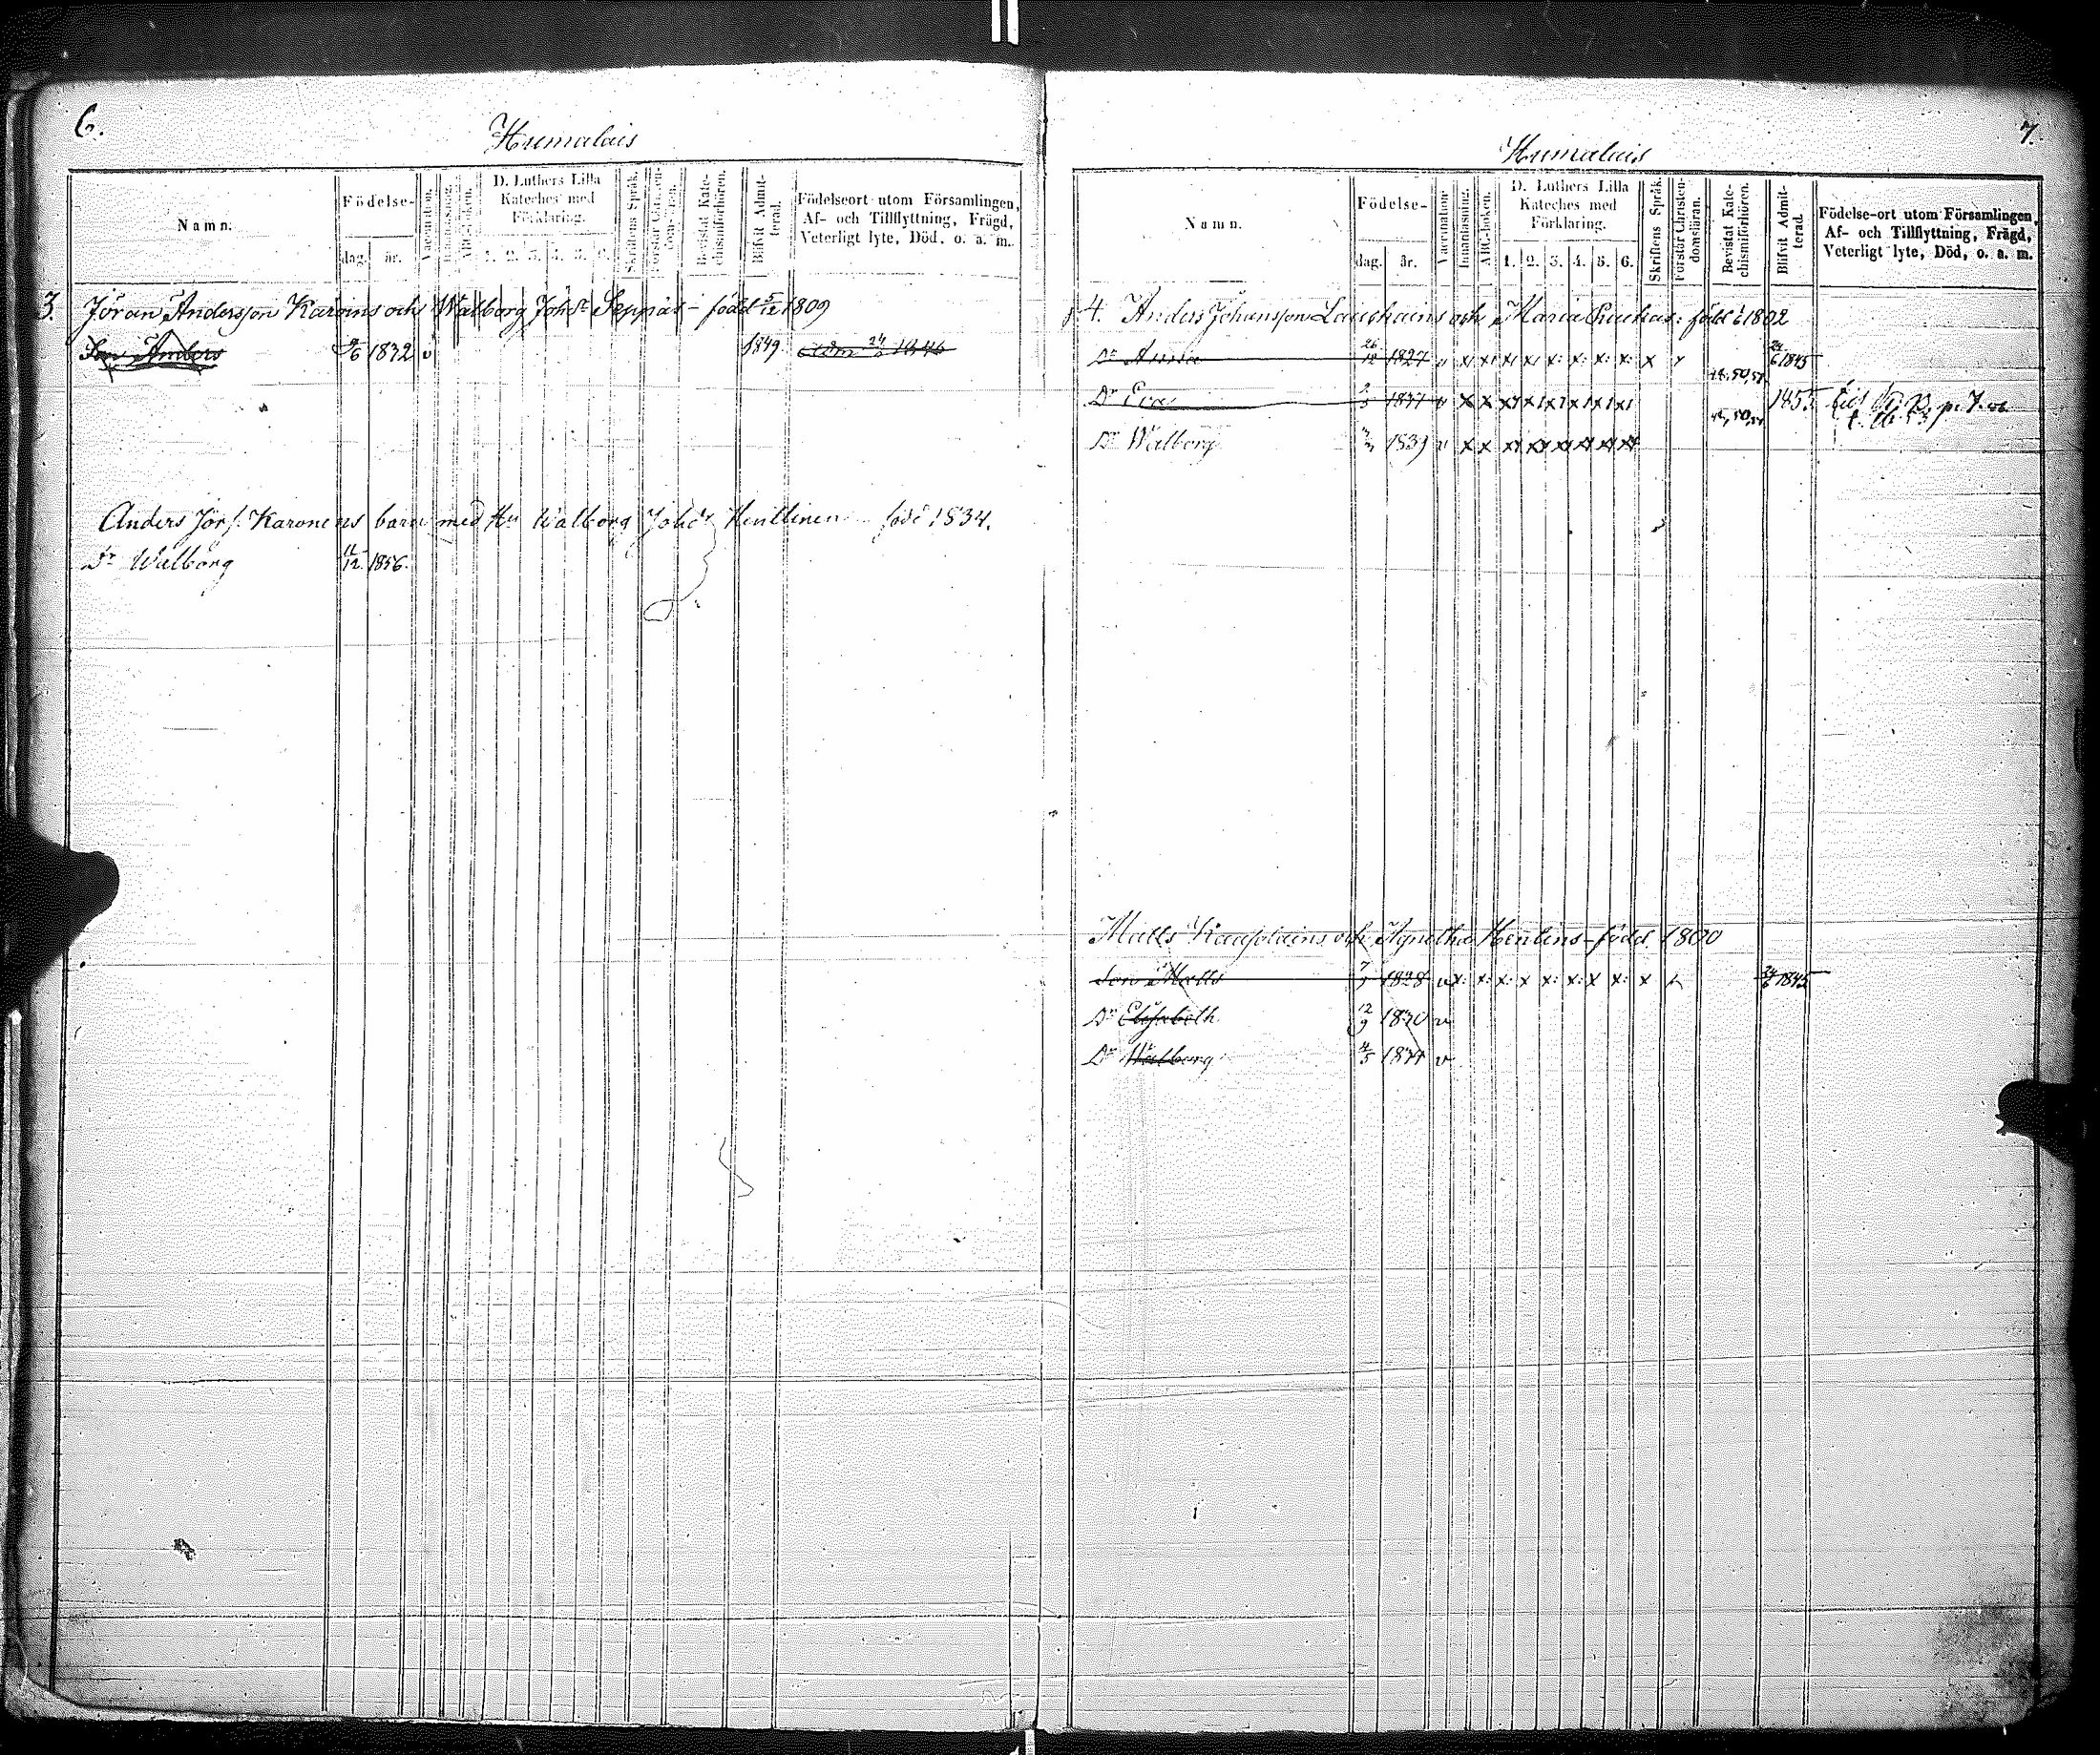 6.
Humalais
Namn.
Födelse-
dag. år.
Vaccination.
Innanläsning.
ABC-boken.
D. Luthers Lilla
Kateches med
Förklaring.
1. 2. 3. 4. 5. 6.
Skriftens Språk.
Bevistat Kate-
chismiförhören.
Blifvit Admit-
terad.
Födelseort utom Församlingen,
Af- och Tillflyttning, Frägd,
Veterligt lyte, Död, o. a. m.
3. Jöran Andersson Karoins och Walborg Johs Dr Seppäs - född 5/12 1809
Son Anders 9/6 1832 v 1849. Adm 24/6 1846
Anders Jörs. Karonens barn med Hu Walborg Johdr Henttinen född 1834.
Dr Walborg 11/12 1856.
7.
Humalais
Namn.
Födelse-
dag. år.
Vaccination.
Innanläsning.
ABC-boken.
D. Luthers Lilla
Kateches med
Förklaring.
1. 2. 3. 4. 5. 6.
Skriftens Språk.
Förstår Christen-
domsläran.
Bevistat Kate-
chismiförhören.
Blifvit Admit-
terad.
Födelse-ort utom Församlingen,
Af- och Tillflyttning, Frägd,
Veterligt lyte, Död, o. a. m.
4. Anders Johansson och Maria född 1802
Dr Anna 26/12 1827 v x x x x x: x: x: x: x 24/6 1845
Dr Eva v x x x x x x x x 50, 1855 p. 7.
Dr Walborg 1839 v x x x x x x x x
Matts och Agnetha Henlins - född 1800
Son Matts 1828 v x: x: x: x x: x: x x: x 24/6 1845
Dr Elisabeth 12/9 1830 v
Dr Walborg 4/5 v